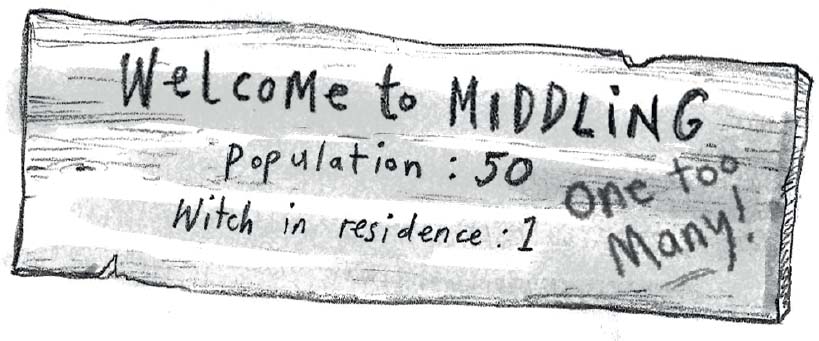 Welcome to MIDDLiNG
Population : 50
Witch in residence : 1
One too
Many!